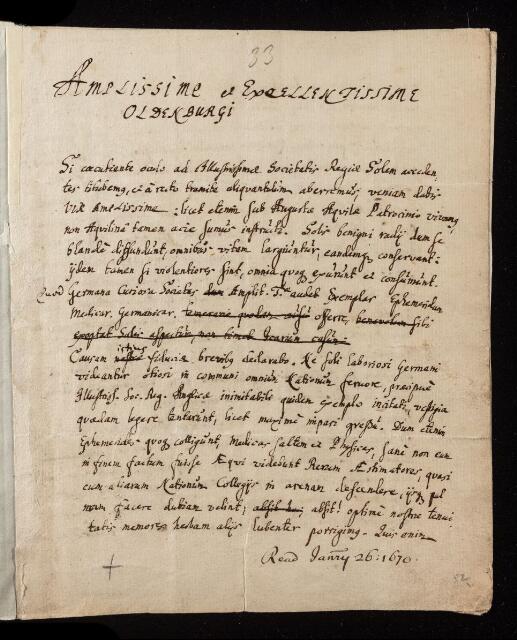 33
Amplissime et Excellentissime
Oldenburgi
Si cæcutiente oculo ad Illustrissimæ Societatis Regiæ Solem acceden-
tes titubemq, et à recto tramite aliquantulùm aberremus, veniam dabis
Vir Amplissime: licet etenim sub Augustæ Aquilæ Patrocinio vivamq,
non Aquilinâ tamen acie sumus instructi. Solis benigni radij dum se
blandè diffundunt, omnibus vitam largiuntur, eandemq conservent:
ijdem tamen si violentiores sint, omnia quoq exurunt et consumunt.
Quòd Germana Curiosa Societas Amplit. Tæ audet Exemplar Ephemeridum
Medicar. Germanicar. temerario quodam ausu offerre, sibi
Solis non timet Icarum casum.
Causam istius fiduciæ brevibq declarabo. Ne soli laboriosi Germani
videantur otiosi in communi omniũ Nationũ fervore, præsertim
Illustriss. Soc. Reg. Anglicæ inimitabili quidem Exemplo incitati, vestigia
quædam legere tentarunt, licet maximè impari gressu. Dum etenim
Ephemerides quoq colligunt, Medicas saltem et Physicas, sanè non eum
in finem factum fuisse Æqui videbunt Rerum Æstimatores, quasi
cum aliarum Nationũ Collegijs in arenam descendere, ijsq
mam facere dubiam velint; absit! optimè nostræ tenui-
tatis memores herbam alijs lubenter porrigimq. Quis enim
Read Janry 26: 1670.
52